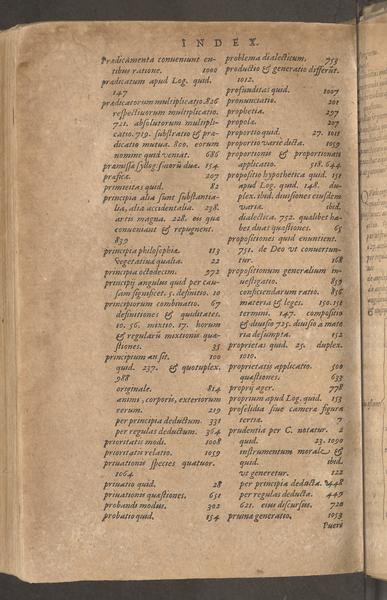 INDEX.
Prædicamenta conueniunt en-
tibus ratione. 1000
prædicatum apud Log. quid.
147
prædicatorum multiplicatio. 826
respectiuorum multiplicatio.
721. absolutorum multipli-
catio. 719. substratio & præ-
dicatio mutua. 800. eorum
nomine quid veniat. 686
præmissæ syllogismorū duæ. 154
praxicæ 207
primitas quid. 82
principia alia sunt substantia-
lia, alia accidentalia. 238.
artis magna. 228. eis quæ
conueniant & repugnent.
837
principia philosophiæ. 113
vegetatiua qualia. 22
principia octodecim. 972
principij angulus quid per cau-
sam significet. 5. definitio. 10
principiorum combinatio. 67
definitiones & quiditates.
10. 56. mixtio. 17. horum
& regularū mixtionis quæ-
stiones. 35
principium an sit. 100
quid. 237. & quotuplex.
788
originale. 814
animi, corporis, exteriorum
rerum. 219
per principia deductum. 331
per regulas deductum. 364
prioritatis modi. 1008
prioritatis relatio. 1059
priuationis species quatuor.
1064
priuatio quid. 28
priuationis quæstiones. 631
probandi modus. 302
probatio quid. 154
problema dialecticum. 753
productio & generatio differūt.
1012.
profunditas quid. 1007
pronunciatio. 201
prophetia. 297
propolæ. 207
proportio quid. 27. 1011
proportio variè dicta. 1059
proportionis & proportionati
applicatio. 518. 644
propositio hypothetica quid. 151
apud Log. quid. 148. du-
plex. ibid. diuisiones eiusdem
variæ. ibid.
dialectica. 752. qualibet ha-
bet duas quæstiones. 65
propositiones quid enuntient.
751. de Deo vt conuertun-
tur. 168
propositionum generalium in-
uestigatio. 859
conficiendarum ratio. 856
materia & leges. 150. 151
termini. 147. compositio
& diuisio 725. diuisio à mate
ria desumpta. 152
proprietas quid. 25. duplex.
1010.
proprietatis applicatio. 500
quæstiones. 633
proprij ager. 778
proprium apud Log. quid. 153
tertia. 7
prudentia per C. notatur. 2
quid. 23. 1090
instrumentum morale &
quid. ibid.
vt generetur. 122
per principia deducta. 448
per regulas deducta. 449
621. eius discursus. 720
pruina generatio. 1053
Pueri